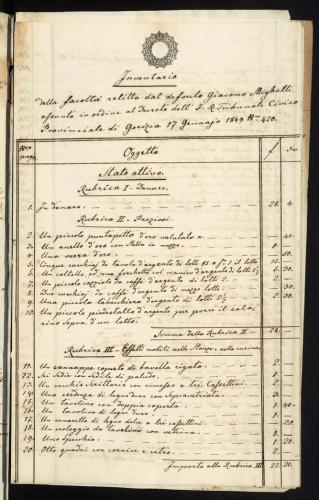 Inventario
della facoltà relitta dal defonto Giacomo Mighetti,
assunto in ordine al Decreto dell' I. R. Tribunale Civico
Provinciale di Gorizia 17 Gennajo 1849 N.ro 420.
Oggetto f
Stato attivo.
Rubrica I - Danaro.
1. In denaro. 28. 4.
Rubrica II - Preziosi.
2. Un piccolo puntapetto d'oro valutato a 40.
3. Un anello d'oro con in mezzo. 1.
4. Una vera d'oro. 50.
5. Cinque cucchiaj da tavola d'argento di lotti 15 a f 1 il lotto 15.
6. Un coltello, ed una forchetta col manico d'argento di lotti 5½ 5. 30.
7. Un piccol cazziolo da caffè d'argento di lotti 2. 2.
8. Due cucchiaj da caffè d'argento di mezzo lotto. 30.
9. Una piccola tabacchiera d'argento di lotti 2½ 2. 30.
10. Un piccolo piedestallo d'argento per porre il sale,
sino sopra d'un lotto. 1.
Somma della Rubrica II 28.
Rubrica III - Effetti mobili nelle Stanze, nella cucina.
11. Un cannappè coperto di bavella rigata. 2.
12. Sei Sedie con sedile di paluda. 1.
13. Un vecchio Scrittorio con rimesso a tre Cassettini. 4.
14. Una credenza di legno duro con Sopravetriata. 3.
15. Un tavolino con doppia coperta. 1. 40.
16. Un tavolino di legno duro. 1.
17. Un armaretto di legno dolce a tre cassettini. 20.
18. Un orologio da tavolino con vetrina. 8.
19. Uno Specchio. 1. 20.
20. Otto quadri con cornice e vetro. 2.
Importo alla Rubrica III 22. 20.